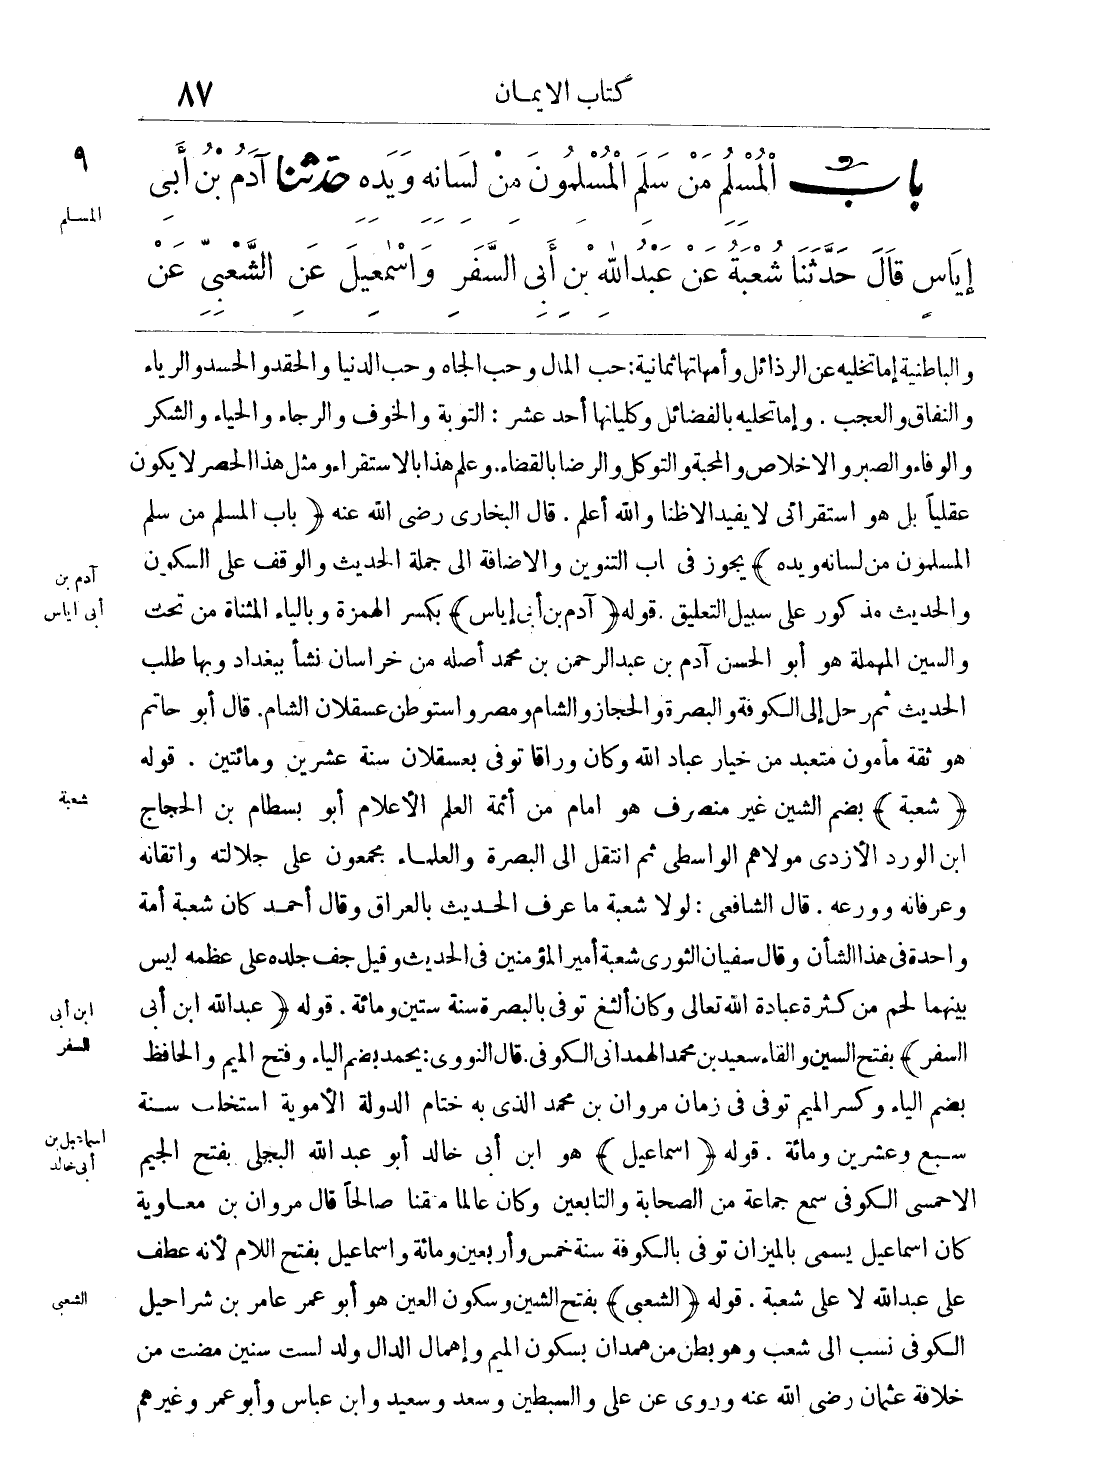 كتاب الايمان ٨٧
٩
المسلم
باب الْمُسْلِمُ مَنْ سَلِمَ الْمُسْلِمُونَ مِنْ لِسَانِهِ وَيَدِهِ حدثنا آدَمُ بْنُ أَبِي
إِيَاسٍ قَالَ حَدَّثَنَا شُعْبَةُ عَنْ عَبْدِ اللهِ بْنِ أَبِى السَّفَرِ وَاسْمٰعِيلَ عَنِ الشَّعْبِىِّ عَنْ
والباطنية إما تخليه عن الرذائل وأمهاتها ثمانية: حب المال وحب الجاه وحب الدنيا والحقد والحسد والرياء
والنفاق والعجب . وإما تحليه بالفضائل وكلياتها أحد عشر : التوبة والخوف والرجاء والحياء والشكر
والوفاء والصبر والاخلاص والمحبة والتوكل والرضا بالقضاء. وعلم هذا بالاستقراء ومثل هذا الحصر لا يكون
عقلياً بل هو استقرائى لا يفيد الا ظنا والله أعلم . قال البخارى رضى الله عنه ﴿ باب المسلم من سلم
المسلمون من لسانه ويده ﴾ يجوز فى اب التنوين والاضافة الى جملة الحديث والوقف على السكون
والحديث مذكور على سبيل التعليق . قوله ﴿ آدم بن أبى إياس ﴾ بكسر الهمزة وبالياء المثناة من تحت
والسين المهملة هو أبو الحسن آدم بن عبدالرحمن بن محمد أصله من خراسان نشأ ببغداد وبها طلب
الحديث ثم رحل إلى الكوفة والبصرة والحجاز والشام ومصر واستوطن عسقلان الشام. قال أبو حاتم
هو ثقة مأمون متعبد من خيار عباد الله وكان وراقا توفى بعسقلان سنة عشرين ومائتين . قوله
﴿ شعبة ﴾ بضم الشين غير منصرف هو امام من أئمة العلم الأعلام أبو بسطام بن الحجاج
ابن الورد الأزدى مولاهم الواسطى ثم انتقل الى البصرة والعلماء مجمعون على جلالته واتقانه
وعرفانه وورعه . قال الشافعى : لولا شعبة ما عرف الحديث بالعراق وقال أحمد كان شعبة أمة
واحدة فى هذا الشأن وقال سفيان الثورى شعبة أمير المؤمنين فى الحديث وقيل جف جلده على عظمه ليس
بينهما لحم من كثرة عبادة الله تعالى وكان ألثغ توفى بالبصرة سنة ستين ومائة . قوله ﴿ عبدالله ابن أبى
السفر ﴾ بفتح السين والفاء سعيد بن محمد الهمدانى الكوفى. قال النووى: يحمد بضم الياء وفتح الميم والحافظ
بضم الياء وكسر الميم توفى فى زمان مروان بن محمد الذى به ختام الدولة الأموية استخلف سنة
سبع وعشرين ومائة . قوله ﴿ اسماعيل ﴾ هو ابن أبى خالد أبو عبد الله البجلى بفتح الجيم
الاحمسى الكوفى سمع جماعة من الصحابة والتابعين وكان عالما متقنا صالحاً قال مروان بن معاوية
كان اسماعيل يسمى بالميزان توفى بالكوفة سنة خمس وأربعين ومائة واسماعيل بفتح اللام لأنه عطف
على عبدالله لا على شعبة . قوله ﴿ الشعبى ﴾ بفتح الشين وسكون العين هو أبو عمر عامر بن شراحيل
الكوفى نسب الى شعب وهو بطن من همدان بسكون الميم وإهمال الدال ولد لست سنين مضت من
خلافة عثمان رضى الله عنه وروى عن على والسبطين وسعد وسعيد وابن عباس وأبو عمر وغيرهم
آدم بن
أبى اياس
شعبة
ابن أبى
السفر
اسماعيل بن
أبى خالد
الشعبى